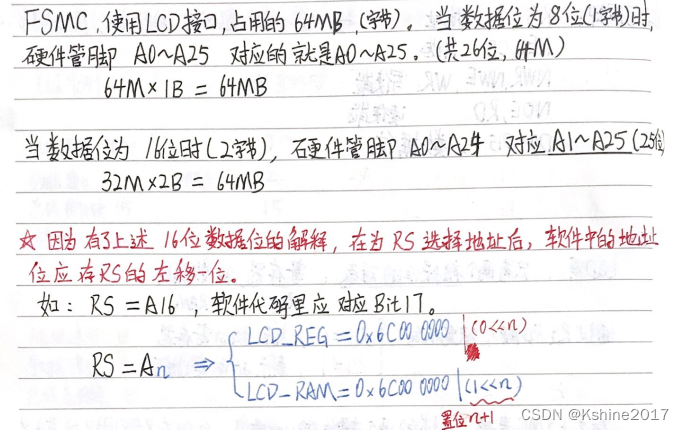 FSMC,使用LCD接口,占用的64MB(字节)。当数据位为8位(1字节)时,
硬件管脚 A0~A25 对应的就是A0~A25。(共26位,64M)
64M×1B = 64MB
当数据位为16位时(2字节),硬件管脚A0~A24 对应A1~A25(25位)
32M×2B = 64MB
☆ 因为有了上述16位数据位的解释,在为RS选择地址后,软件中的地址
位应在RS的左移一位。
如:RS=A16,软件代码里应对应Bit17。
RS=An ⇒ { LCD_REG=0x6C00 0000 |(0<<n)
LCD_RAM=0x6C00 0000 |(1<<n)
置位n+1
CSDN @Kshine2017